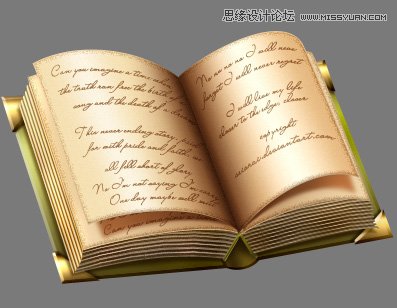 思缘设计论坛 WWW.MISSYUAN.COM
Can you imagine a time when
the truth ran free the birth of
song and the death of a
This never ending story
for with pride and faith
all fell short of glory
No I'm not saying I'm sorry
One day maybe we'll
Can you imagine
No no no no I will never
forget I will never regret
I will live my life
closer to the edge closer
copyright
.deviantart.com